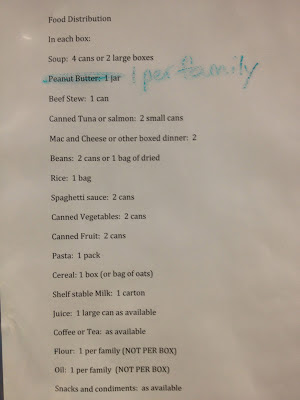 Food Distribution
In each box:
Soup: 4 cans or 2 large boxes
Peanut Butter: 1 jar 1 per family
Beef Stew: 1 can
Canned Tuna or salmon: 2 small cans
Mac and Cheese or other boxed dinner: 2
Beans: 2 cans or 1 bag of dried
Rice: 1 bag
Spaghetti sauce: 2 cans
Canned Vegetables: 2 cans
Canned Fruit: 2 cans
Pasta: 1 pack
Cereal: 1 box (or bag of oats)
Shelf stable Milk: 1 carton
Juice: 1 large can as available
Coffee or Tea: as available
Flour: 1 per family (NOT PER BOX)
Oil: 1 per family (NOT PER BOX)
Snacks and condiments: as available